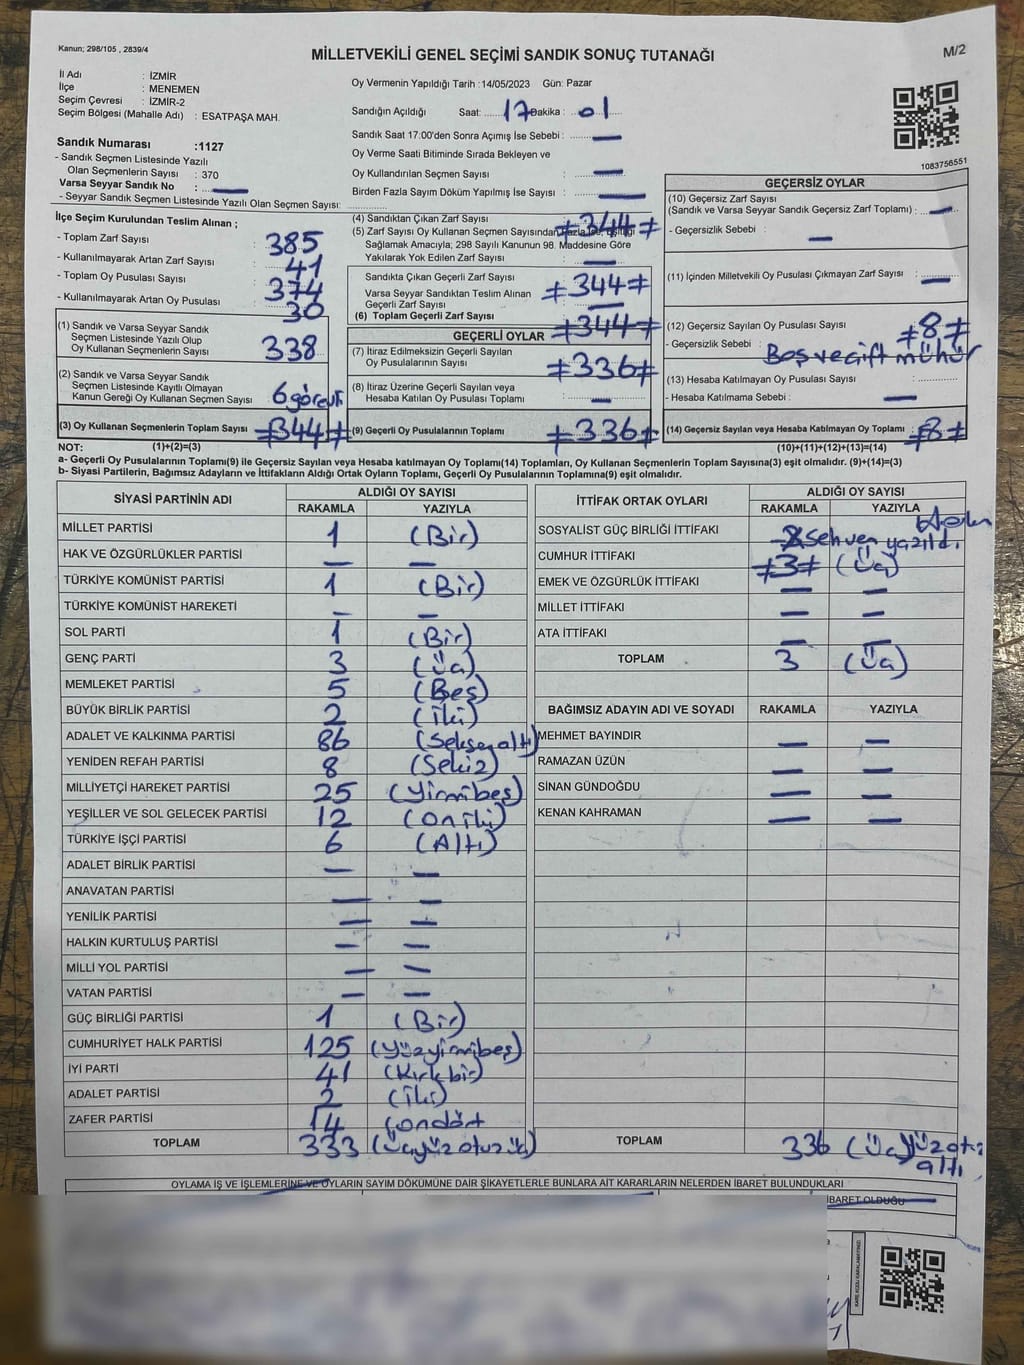 Kanun; 298/105 , 2839/4
MİLLETVEKİLİ GENEL SEÇİMİ SANDIK SONUÇ TUTANAĞI
M/2
İl Adı : İZMİR
İlçe : MENEMEN
Seçim Çevresi : İZMİR-2
Seçim Bölgesi (Mahalle Adı) : ESATPAŞA MAH.
Sandık Numarası :1127
- Sandık Seçmen Listesinde Yazılı
Olan Seçmenlerin Sayısı : 370
Varsa Seyyar Sandık No : —
- Seyyar Sandık Seçmen Listesinde Yazılı Olan Seçmen Sayısı:
Oy Vermenin Yapıldığı Tarih :14/05/2023 Gün: Pazar
Sandığın Açıldığı Saat: 17 Dakika : 01
Sandık Saat 17:00'den Sonra Açımış İse Sebebi : —
Oy Verme Saati Bitiminde Sırada Bekleyen ve
Oy Kullandırılan Seçmen Sayısı : —
Birden Fazla Sayım Döküm Yapılmış İse Sayısı : —
1083756551
İlçe Seçim Kurulundan Teslim Alınan ;
- Toplam Zarf Sayısı : 385
- Kullanılmayarak Artan Zarf Sayısı : 41
- Toplam Oy Pusulası Sayısı : 374
- Kullanılmayarak Artan Oy Pusulası : 30
(1) Sandık ve Varsa Seyyar Sandık
Seçmen Listesinde Yazılı Olup
Oy Kullanan Seçmenlerin Sayısı : 338
(2) Sandık ve Varsa Seyyar Sandık
Seçmen Listesinde Kayıtlı Olmayan
Kanun Gereği Oy Kullanan Seçmen Sayısı : 6 görevli
(3) Oy Kullanan Seçmenlerin Toplam Sayısı : ≠344≠
(4) Sandıktan Çıkan Zarf Sayısı : ≠344≠
(5) Zarf Sayısı Oy Kullanan Seçmen Sayısından Fazla İse, Eşitliği
Sağlamak Amacıyla; 298 Sayılı Kanunun 98. Maddesine Göre
Yakılarak Yok Edilen Zarf Sayısı : —
Sandıkta Çıkan Geçerli Zarf Sayısı : ≠344≠
Varsa Seyyar Sandıktan Teslim Alınan
Geçerli Zarf Sayısı : —
(6) Toplam Geçerli Zarf Sayısı : ≠344≠
GEÇERLİ OYLAR
(7) İtiraz Edilmeksizin Geçerli Sayılan
Oy Pusulalarının Sayısı : ≠336≠
(8) İtiraz Üzerine Geçerli Sayılan veya
Hesaba Katılan Oy Pusulaları Toplamı : —
(9) Geçerli Oy Pusulalarının Toplamı : ≠336≠
GEÇERSİZ OYLAR
(10) Geçersiz Zarf Sayısı
(Sandık ve Varsa Seyyar Sandık Geçersiz Zarf Toplamı) : —
- Geçersizlik Sebebi : —
(11) İçinden Milletvekili Oy Pusulası Çıkmayan Zarf Sayısı : —
(12) Geçersiz Sayılan Oy Pusulası Sayısı : ≠8≠
- Geçersizlik Sebebi : Boş ve çift mühür
(13) Hesaba Katılmayan Oy Pusulası Sayısı :
- Hesaba Katılmama Sebebi : —
(14) Geçersiz Sayılan veya Hesaba Katılmayan Oy Toplamı : ≠8≠
NOT: (1)+(2)=(3) (10)+(11)+(12)+(13)=(14)
a- Geçerli Oy Pusulalarının Toplamı(9) ile Geçersiz Sayılan veya Hesaba katılmayan Oy Toplamı(14) Toplamları, Oy Kullanan Seçmenlerin Toplam Sayısına(3) eşit olmalıdır. (9)+(14)=(3)
b- Siyasi Partilerin, Bağımsız Adayların ve İttifakların Aldığı Ortak Oyların Toplamı, Geçerli Oy Pusulalarının Toplamına(9) eşit olmalıdır.
SİYASİ PARTİNİN ADI ALDIĞI OY SAYISI
RAKAMLA YAZIYLA
MİLLET PARTİSİ 1 (Bir)
HAK VE ÖZGÜRLÜKLER PARTİSİ — —
TÜRKİYE KOMÜNİST PARTİSİ 1 (Bir)
TÜRKİYE KOMÜNİST HAREKETİ — —
SOL PARTİ 1 (Bir)
GENÇ PARTİ 3 (Üç)
MEMLEKET PARTİSİ 5 (Beş)
BÜYÜK BİRLİK PARTİSİ 2 (İki)
ADALET VE KALKINMA PARTİSİ 86 (Seksenaltı)
YENİDEN REFAH PARTİSİ 8 (Sekiz)
MİLLİYETÇİ HAREKET PARTİSİ 25 (Yirmibeş)
YEŞİLLER VE SOL GELECEK PARTİSİ 12 (Oniki)
TÜRKİYE İŞÇİ PARTİSİ 6 (Altı)
ADALET BİRLİK PARTİSİ — —
ANAVATAN PARTİSİ — —
YENİLİK PARTİSİ — —
HALKIN KURTULUŞ PARTİSİ — —
MİLLİ YOL PARTİSİ — —
VATAN PARTİSİ — —
GÜÇ BİRLİĞİ PARTİSİ 1 (Bir)
CUMHURİYET HALK PARTİSİ 125 (Yüzyirmibeş)
İYİ PARTİ 41 (Kırkbir)
ADALET PARTİSİ 2 (İki)
ZAFER PARTİSİ 14 (ondört
TOPLAM 333 (Üçyüzotuzüç)
İTTİFAK ORTAK OYLARI ALDIĞI OY SAYISI
RAKAMLA YAZIYLA
SOSYALİST GÜÇ BİRLİĞİ İTTİFAKI Sehven yazıldı.
CUMHUR İTTİFAKI ≠3≠ (Üç)
EMEK VE ÖZGÜRLÜK İTTİFAKI — —
MİLLET İTTİFAKI — —
ATA İTTİFAKI — —
TOPLAM 3 (Üç)
BAĞIMSIZ ADAYIN ADI VE SOYADI RAKAMLA YAZIYLA
MEHMET BAYINDIR — —
RAMAZAN ÜZÜN — —
SİNAN GÜNDOĞDU — —
KENAN KAHRAMAN — —
TOPLAM 336 (Üçyüzotuz
altı
OYLAMA İŞ VE İŞLEMLERİNE VE OYLARIN SAYIM DÖKÜMÜNE DAİR ŞİKAYETLERLE BUNLARA AİT KARARLARIN NELERDEN İBARET BULUNDUKLARI
İBARET OLDUĞU